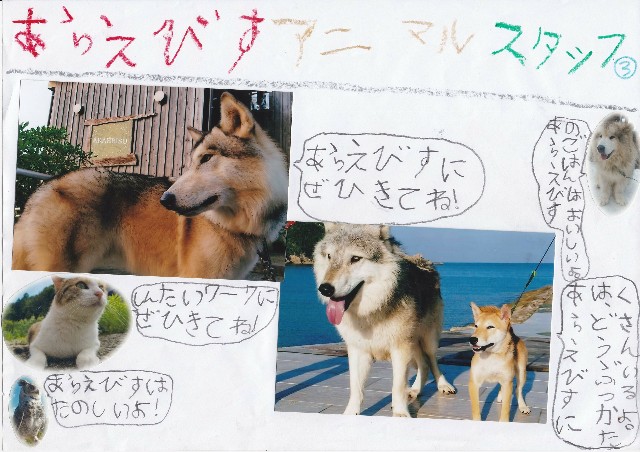 あらえびすアニマルスタッフ③
あらえびすに
ぜひきてね!
あらえびす
のごはんはおいしいよ。
しんたいワークに
ぜひきてね!
あらえびすに
は、どうぶつがた
くさんいるよ。
あらえびすは
たのしいよ!